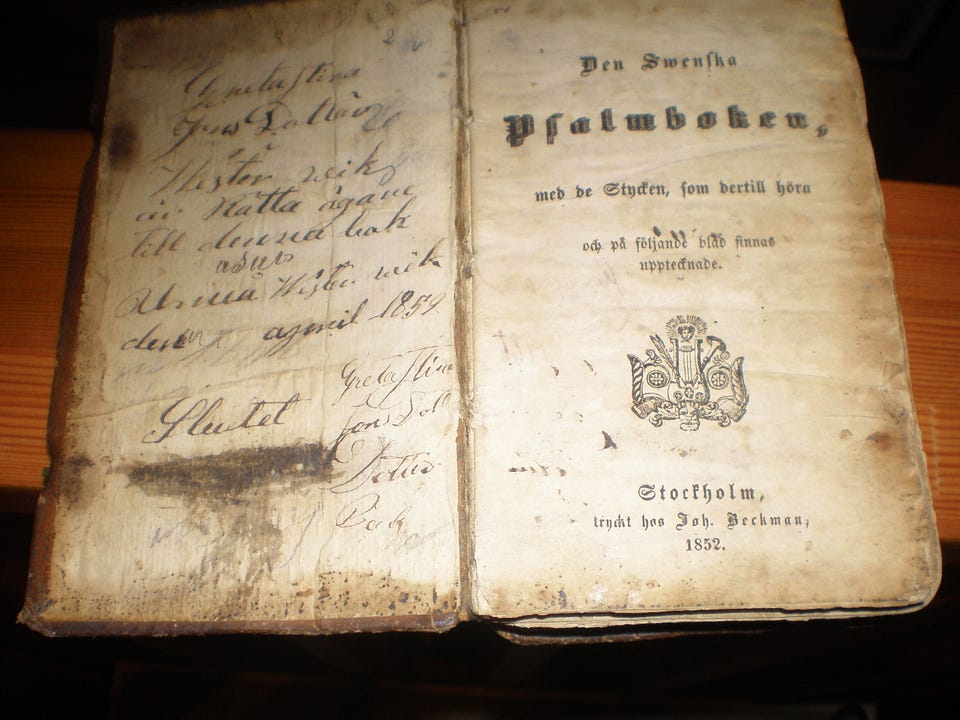 Gretastina
Jons Dotter
i
Wester wik
är Rätta ägare
till denna bok
Wester wik
den april 1859
Slutet
Gretastina
Jons
Dotter
Bok
Den Swenska
Psalmboken,
med de Stycken, som dertill höra
och på följande blad finnas
upptecknade.
Stockholm,
tryckt hos Joh. Beckman,
1852.